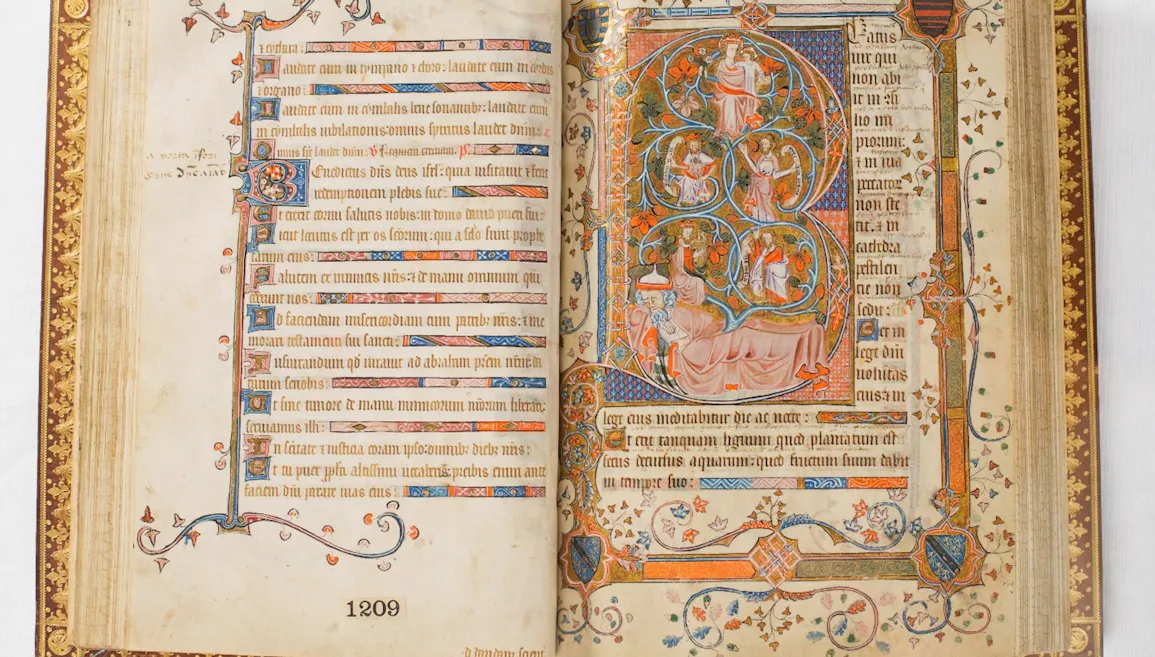 ⁊ cythara:
Laudate eum in tympano ⁊ choro: laudate eum in cordis
⁊ organo:
Laudate eum in cymbalis bene sonantibꝫ: laudate eum
in cymbalis iubilationis: omnis spiritus laudet dnm
Benedictus dn̄s deus isrl̄: quia uisitauit ⁊ fecit
redemptionem plebis sue:
Et erexit cornu salutis nobis: in domo dauid pueri sui:
Sicut locutus est per os sc̄orum: qui a sc̄lo sunt prophe
tarum eius:
Salutem ex inimicis nr̄is: ⁊ de manu omnium qui
oderunt nos:
Ad faciendam misericordiam cum patribꝫ nr̄is: ⁊ me
morari testamenti sui sancti:
Iusiurandum qđ iurauit ad abraham prēm nr̄m: da
turum se nobis:
Ut sine timore de manu inimicorum nr̄orum liberati:
seruiamus illi:
In sc̄itate ⁊ iusticia coram ipso: omnibꝫ diebꝫ nr̄is:
Et tu puer ꝓph̄a altissimi uocaberis: preibis enim ante
faciem dn̄i parare uias eius:
1209
Beatus
uir qui
non abi
it in 
lio im
piorum:
⁊ in uia
peccator
non ste
tit: ⁊ in
cathedra
pestilen
tie non
sedit:
Set in
lege dn̄i
uoluntas
eius: ⁊ in
lege eius meditabitur die ac nocte:
Et erit tanquam lignum quod plantatum est
secus decursus aquarum: quod fructum suum dabit
in tempore suo: